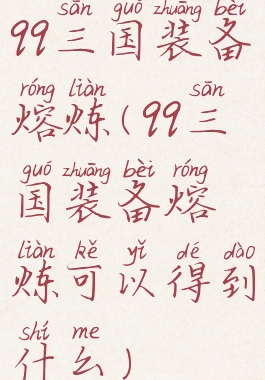 sān guó zhuāng bèi
99三国装备
róng liàn sān
熔炼(99三
guó zhuāng bèi róng
国装备熔
liàn kě yǐ dé dào
炼可以得到
shí me
什么)